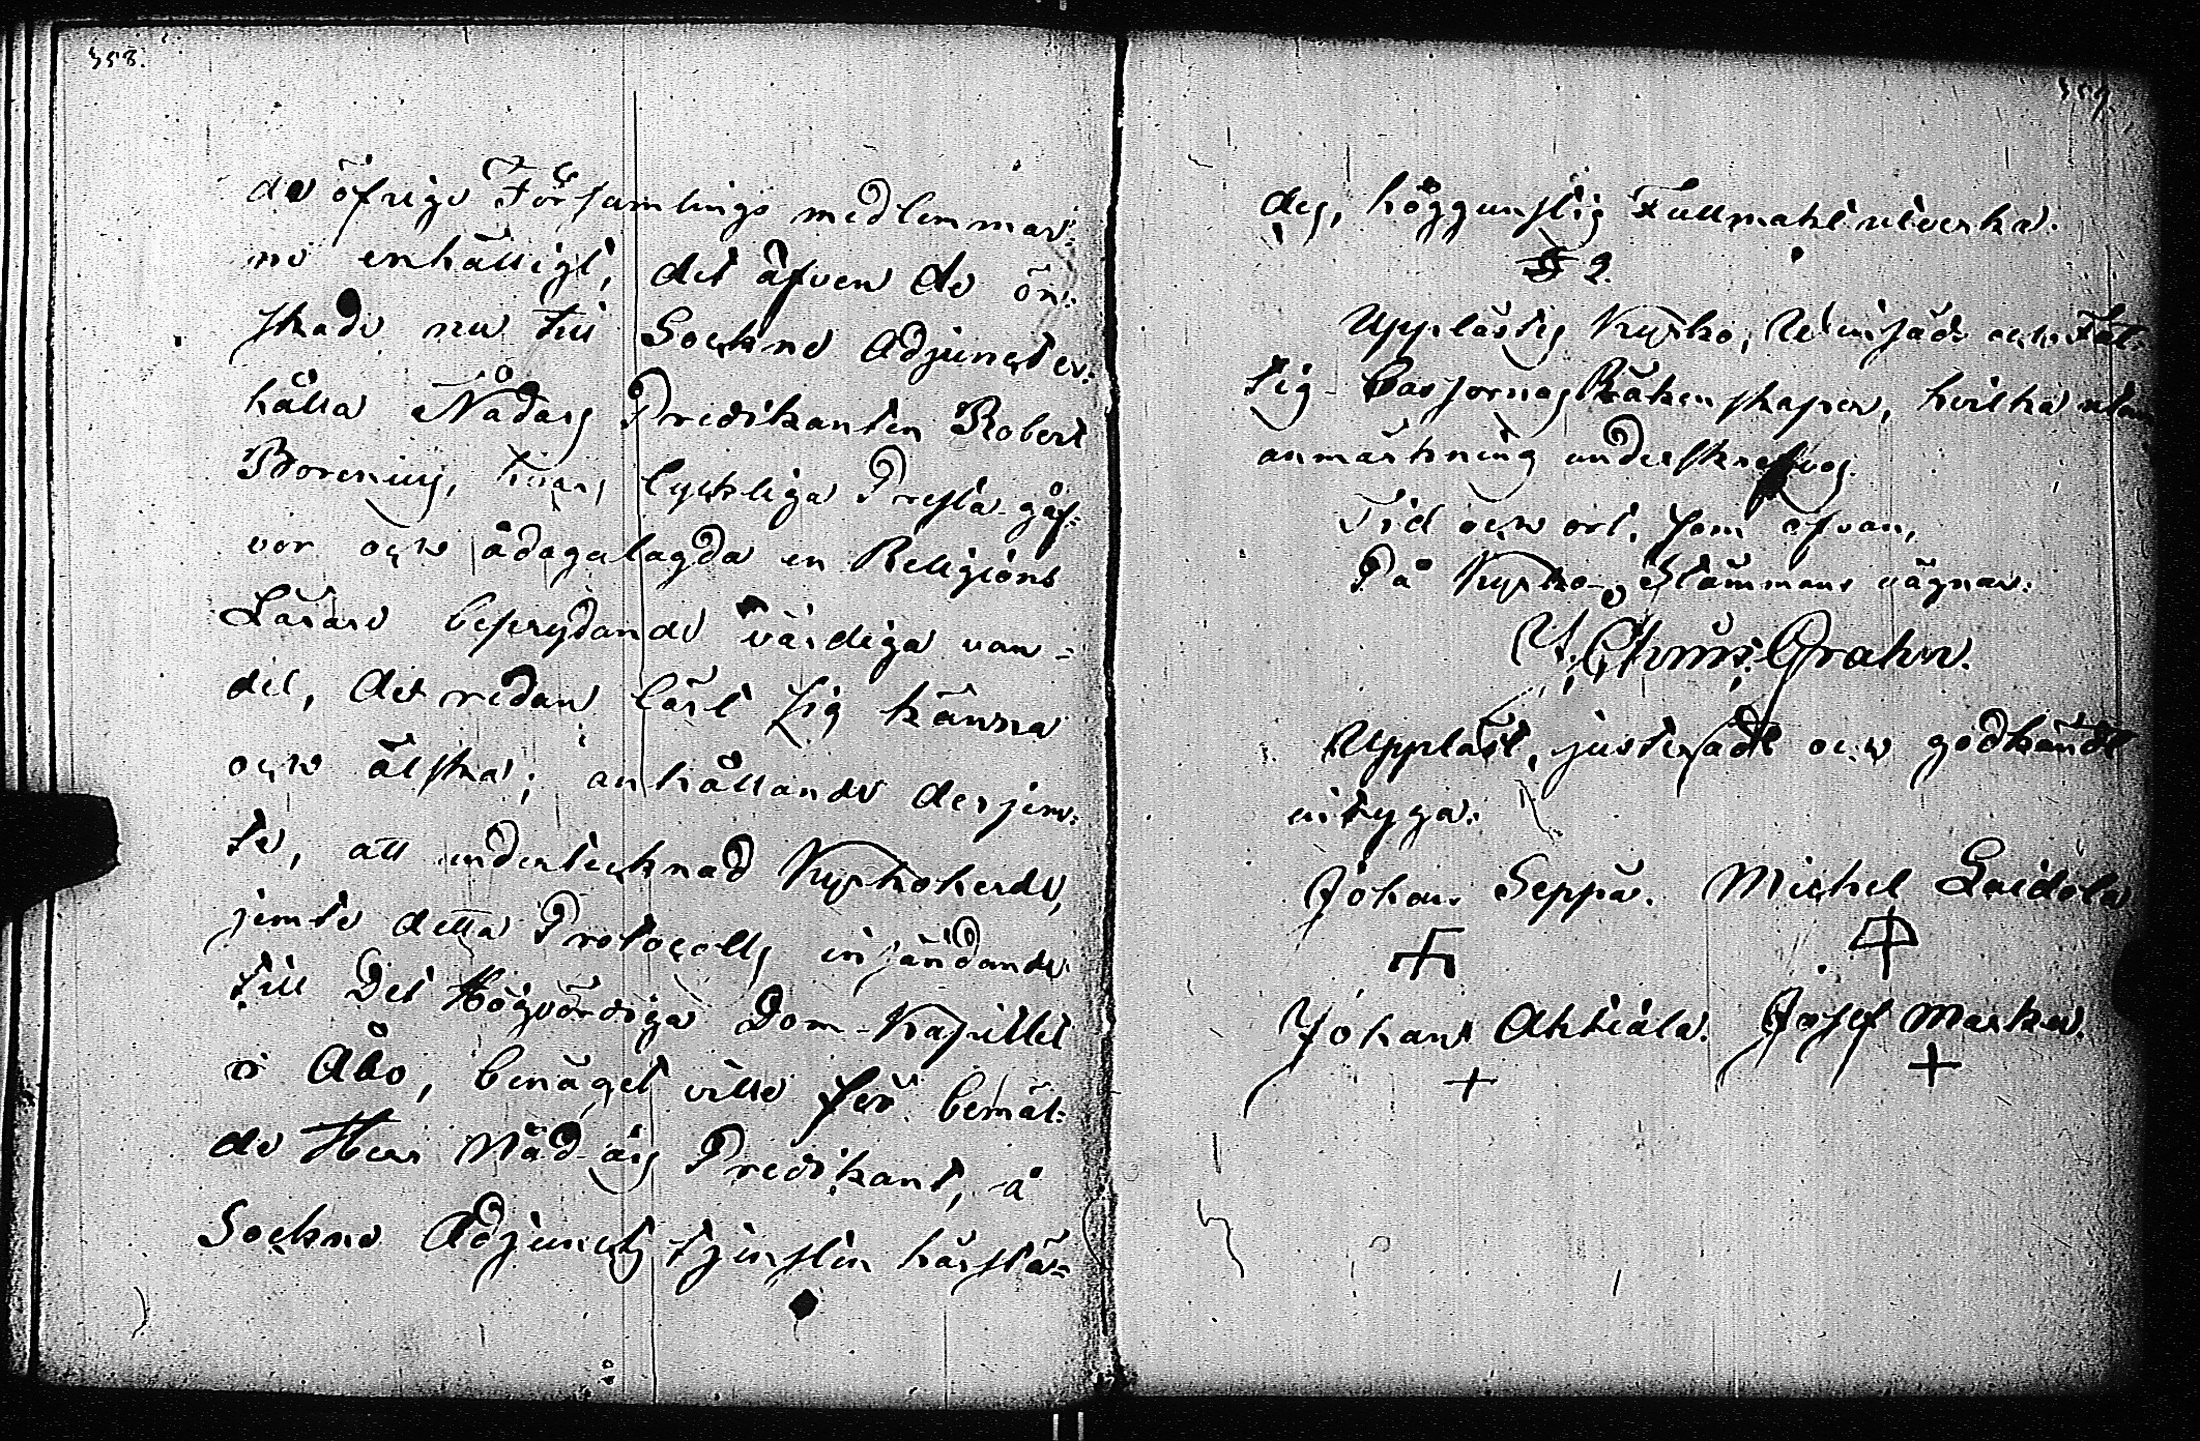 358.
de öfrige Församlings medlemmar:
ne enhälligt, det äfven de ön:
skade nu till Sockne Adjunct er:
hålla Nådårs Predikanten Robert
Borenius, hvars lyckliga Presta-gåf:
vor och ådagalagda en Religions
Lärare beprydande värdiga van-
del, de redan lärt sig känna
och älska; anhållande derjem:
te, att undertecknad Kyrkoherde,
jemte detta Protocolls insändande
till Det Högvördiga Dom-Kapitlet
i Åbo, benäget ville för bemäl:
de Herr Nåd-års Predikant, å
Sockne Adjuncts tjensten härstä:
359.
des, höggunstig Fullmakt utverka.
§ 2.
Upplästes Kyrko, och Fat:
tig-Cassornas Räkenskaper, hvilka utan
anmärkning underskrefvos.
Tid och ort, som ofvan,
På Kyrko-Stämmans vägnar:
Chr: Grahn.
Uppläst, justeradt och godkändt
intyga:
Johan Seppä. Michel Laidola
Johan Ahtiala. Josef Marku.
+ +